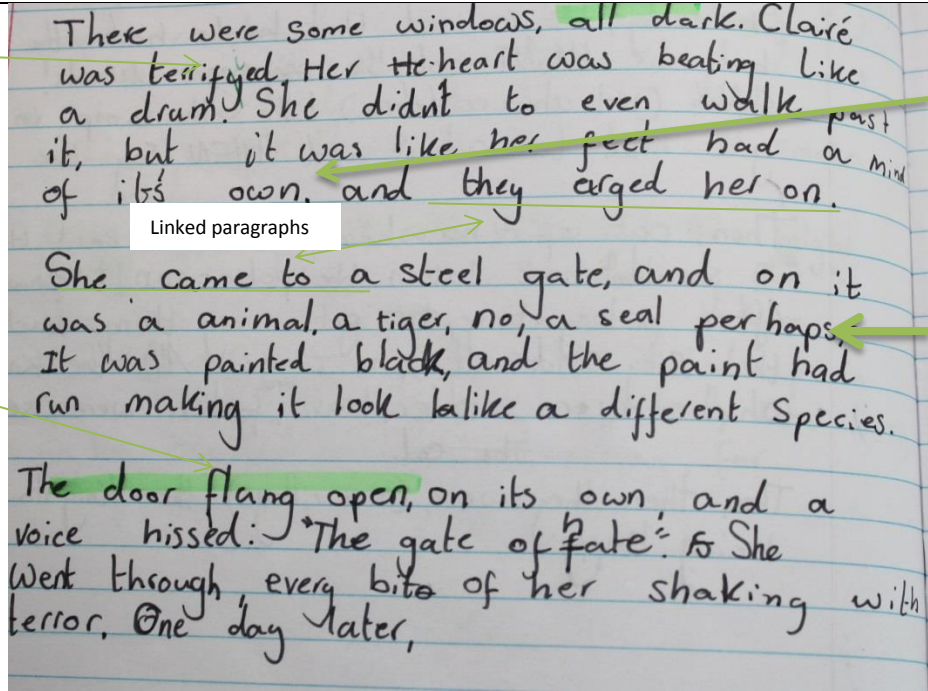 There were some windows, all dark. Clairé
was terrifyed. Her He heart was beating like
a drum. She didn't to even walk past
it, but it was like her feet had a mind
of its own. and they erged her on.
Linked paragraphs
She came to a steel gate, and on it
was a animal. a tiger, no, a seal perhaps,
It was painted black, and the paint had
run making it look lalike a different species.
The door flung open, on its own, and a
voice hissed: "The gate of fate". She
went through, every bite of her shaking with
terror. One day later,